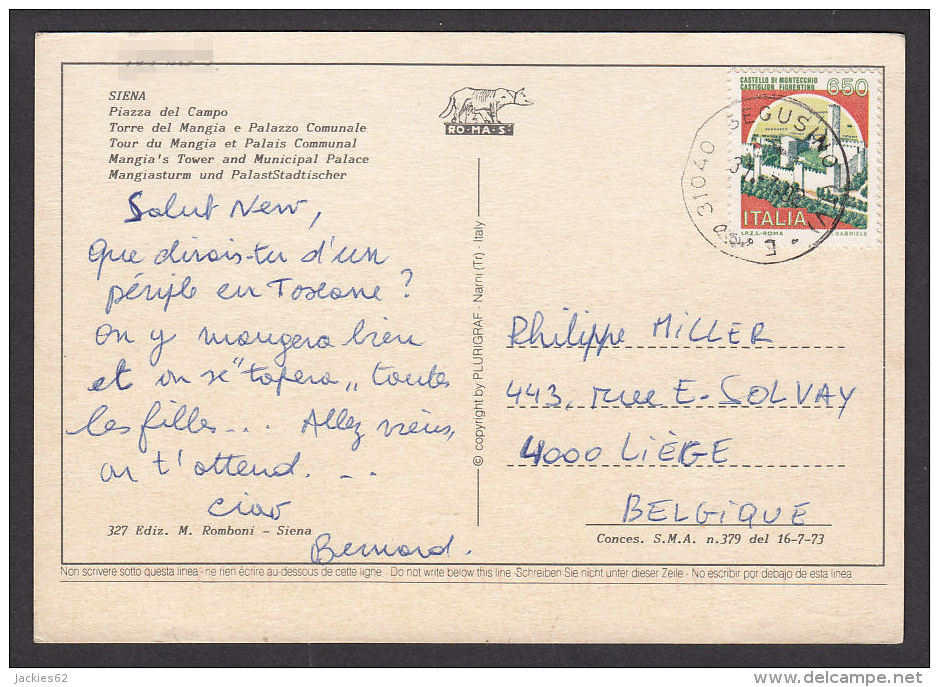 SIENA
Piazza del Campo
Torre del Mangia e Palazzo Comunale
Tour du Mangia et Palais Communal
Mangia's Tower and Municipal Palace
Mangiasturm und PalastStadtischer
RO·MA·S·
CASTELLO DI MONTECCHIO
CASTIGLION FIORENTINO
650
ITALIA
I.P.Z.S.-ROMA
GABRIELE
31040 SEGUSINO
Salut New,
Que dirais-tu d'un
périple en Toscane ?
On y mangera bien
et on se "tapera" toutes
les filles... Allez viens,
on t'attend...
ciao
Bernard.
© copyright by PLURIGRAF - Narni (Tr) - Italy
Philippe MILLER
443, rue E. SOLVAY
4000 LIÈGE
BELGIQUE
327 Ediz. M. Romboni - Siena
Conces. S.M.A. n.379 del 16-7-73
Non scrivere sotto questa linea - ne rien écrire au-dessous de cette ligne Do not write below this line - Schreiben Sie nicht unter dieser Zeile - No escribir por debajo de esta linea
jackies62